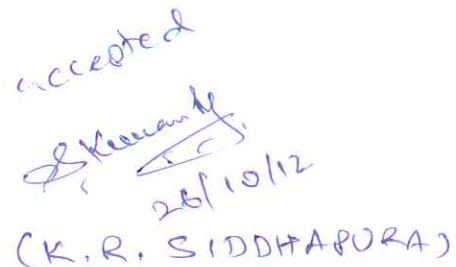 accepted
26/10/12
(K. R. SIDDHAPURA)